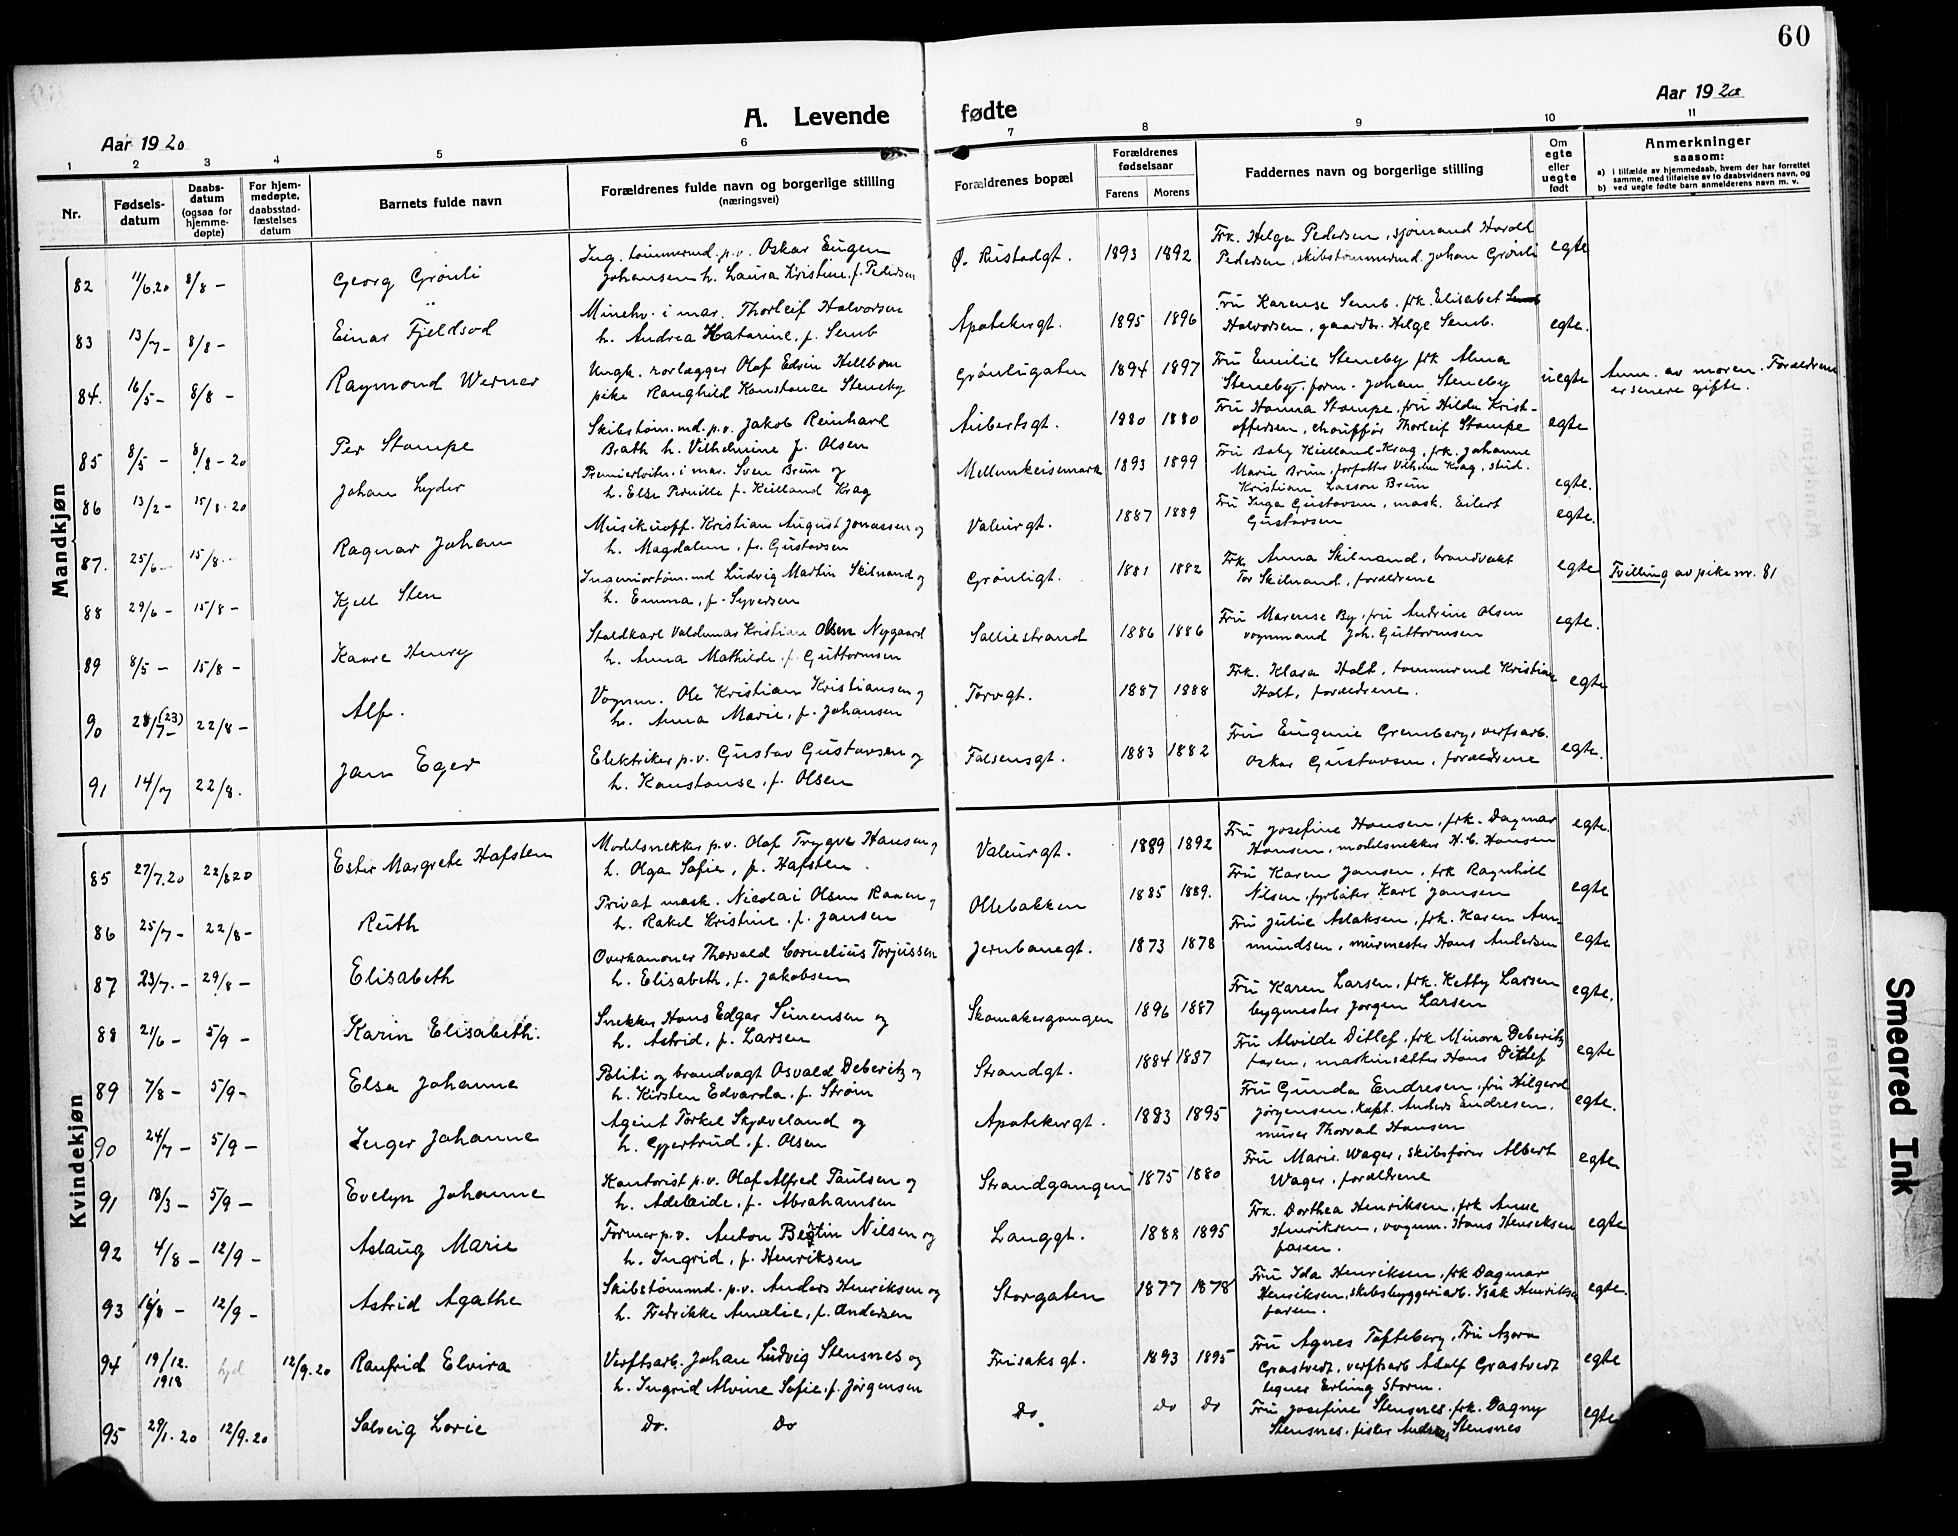 60
A. Levende fødte
Aar 1920
Aar 1920
1 2 3 4 5 6 7 8 9 10 11
Nr.
Fødsels-
datum
Daabs-
datum
(ogsaa for
hjemme-
døpte)
For hjem-
medøpte,
daabsstad-
fæstelses
datum
Barnets fulde navn
Forældrenes fulde navn og borgerlige stilling
(næringsvei)
Forældrenes bopæl
Forældrenes
fødselsaar
Farens Morens
Faddernes navn og borgerlige stilling
Om
egte
eller
uegte
født
Anmerkninger
saasom:
a) i tilfælde av hjemmedaab, hvem der har forrettet
samme, med tilføielse av to daabsvidners navn, og
b) ved uegte fødte barn anmelderens navn m. v.
Mandkjøn
82 11/6.20 8/8 - Georg Grönli
Ing. tømmermd. p.v. Oskar Eugen
Johansen h. Laura Kristine f. Pedersen
Ø. Rustadgt. 1893 1892
Frk. Helga Pedersen, sjömand Harald
Pedersen, skibstømmermd. Johan Grönli
egte
83 13/7 - 8/8 - Einar Fjeldsod
Minehv. i mar. Thorleif Halvorsen
h. Andrea Katarine, f. Semb
Apothekergt. 1895 1896
Fru Karense Semb, frk. Elisabet
Halvorsen, gaardbr. Helge Semb.
egte.
84. 16/5 - 8/8 - Raymond Werner
Ungk. rørlægger Olaf Edvin Hellbom
pike Ranghild Konstance Steneby
Grönligaten 1894 1897
Fru Emilie Steneby frk Alma
Steneby, form. Johan Steneby
uegte
Anm. av moren. Forældrene
er senere gifte.
85 8/5 - 8/8 - 20 Per Stampe
Skibstøm.md. p.v. Jakob Reinhard
Brath h. Vilhelmine f. Olsen
Aubertsgt. 1880 1880
Fru Hanna Stampe, fru Hilda Krist-
offersen, chauffør Thorleif Stampe
egte
86 13/2 - 15/8.20 Johan Lyder
Premierløitn. i mar. Sven Brun og
h. Else Pernille f. Kielland Krag
Mellumkeisemark 1893 1899
Fru Baby Kielland-Krag, frk. Johanne
Marie Brun, forfatter Vilhelm Krag, stud.
Kristian Lasson Brun
egte.
87. 25/6 - 15/8 - Ragnar Johan
Musikuoff. Kristian August Jonassen og
h. Magdalene, f. Gustavsen
Valeurgt. 1887 1889
Fru Inga Gustavsen, mask. Eilert
Gustavsen
egte.
88 29/6 - 15/8 - Kjell Sten
Ingeniørtøm.md Ludvig Martin Skilnand og
h. Emma, f. Syversen
Grönligt. 1881 1882
Frk. Anna Skilnand, brandvakt
Tor Skilnand, forældrene
egte
Tvilling av pike nr. 81
89 8/5 - 15/8 - Kaare Henry
Staldkarl Valdemar Kristian Olsen Nygaard
h. Anna Mathilde f. Guttormsen
Solliestrand 1886 1886
Fru Marense By, fru Andrine Olsen
vognmand Joh. Guttormsen
egte.
90 21/7 (23) - 22/8 - Alf.
Vognm. Ole Kristian Kristiansen og
h. Anna Marie, f. Johansen
Torvgt. 1887 1888
Frk. Klara Holt, tømmermd Kristian
Holt, forældrene.
egte
91 14/7 22/8. Jan Eger
Elektriker p.v. Gustav Gustavsen og
h. Konstanse, f. Olsen
Falsensgt. 1883 1882
Frus Eugenie Gremberg, verfsarb.
Oskar Gustavsen, forældrene
egte.
Kvindekjøn
85 27/7.20 22/8 20 Ester Margrete Hafsten
Modelsnekker p.v. Olaf Trygve Hansen og
h. Olga Sofie, f. Hafsten.
Valeurgt. 1889 1892
Fru Josefine Hansen, frk. Dagmar
Hansen, modelsnekker H.C. Hansen
egte.
86 25/7 - 22/8 - Ruth
Privat mask. Nicolai Olsen Ranen og
h. Rakel Kristine f. Jansen
Ollebakken 1885 1889.
Fru Karen Jansen, frk Ragnhild
Nilsen, fyrbøter Karl Jansen
egte
87 23/7. - 29/8 - Elisabeth
Overkanoner Thorvald Cornelius Torjussen
h. Elisabeth, f. Jakobsen
Jernbanegt. 1873 1878
Fru Julie Aslaksen, frk. Karen Am-
mundsen, murmester Hans Andersen
egte
88 21/6 - 5/9 - Karin Elisabeth.
Snekker Hans Edgar Simensen og
h. Astrid, f. Larsen
Skomakergangen 1896 1887
Fru Karen Larsen, frk. Ketty Larsen
bygmester Jørgen Larsen
egte.
89 7/8 - 5/9 - Elsa Johanne
Politi og brandvagt Osvald Deberitz og
h. Kirsten Edvarda, f. Strøm
Strandgt. 1884 1887
Fru Alvilde Ditlef, frk Minora Deberitz
faren, maskinsætter Hans Ditlef
egte
90 24/7 - 5/9 - Inger Johanne
Agent Torkel Skjæveland og
h. Gjertrud, f. Olsen
Apothekergt. 1883 1895
Fru Gunda Endresen, fru Hilgerd
Jørgensen, kapt. Anders Endresen,
murer Thorvad Hansen
egte.
91 18/3 - 5/9 - Evelyn Johanne
Kontorist p.v. Olaf Alfred Paulsen og
h. Adeleide, f. Abrahamsen
Strandgangen 1875 1880
Fru Marie Wager, skibsfører Albert
Wager, forældrene
egte
92 4/8 - 12/9 - Aslaug Marie
Former p.v. Anton Nilsen og
h. Ingrid, f. Henriksen
Langgt. 1888 1895
Frk. Dorthea Henriksen, frk Anne
Henriksen, vognm. Hans Henriksen
faren.
egte
93 16/8 - 12/9 - Astrid Agathe
Skibstømmd. p.v. Anders Henriksen og
h. Fredrikke Amalie, f. Andersen
Storgaten 1877 1878
Fru Ida Henriksen, frk Dagmar
Henriksen, skibsbyggeriarb. Isak Henriksen
faren.
egte.
94 19/12. 1918 hjd 12/9.20 Ranfrid Elvira
Verftsarb. Johan Ludvig Stensnes og
h. Ingrid Alvine Sofie, f. Jørgensen
Frisaksgt. 1893 1895
Fru Agnes Tofteberg, Fru Azora
Grastvedt, verftsarb Adolf Grastvedt
tegner Erling Storm.
egte
95 29/1.20 12/9.20 Solveig Lovie
Do. Do
Do. do do
Fru Josefine Stensnes, frk. Dagny
Stensnes, fisker Andreas Stensnes
egte
Smeared Ink